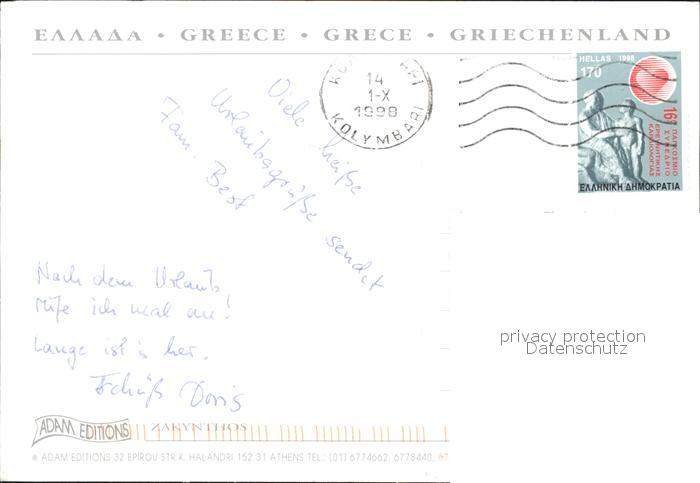 ΕΛΛΑΔΑ • GREECE • GRECE • GRIECHENLAND
HELLAS 1998
170
16º ΠΑΓΚΟΣΜΙΟ
ΣΥΝΕΔΡΙΟ
ΕΡΕΥΝΗΤΙΚΗΣ
ΚΑΡΔΙΟΛΟΓΙΑΣ
ΕΛΛΗΝΙΚΗ ΔΗΜΟΚΡΑΤΙΑ
14
1-X
1998
KOLYMBARI
Viele heiße
Urlaubsgrüße sendet
Fam. Best
Nach dem Urlaub
rufe ich mal an!
Lange ist's her.
Tschüß Doris
privacy protection
Datenschutz
ADAM EDITIONS
ZAKYNTHOS
® ADAM EDITIONS 32 EPIROU STR.K. HALANDRI 152 31 ATHENS TEL.: (01) 6774662, 6778440,